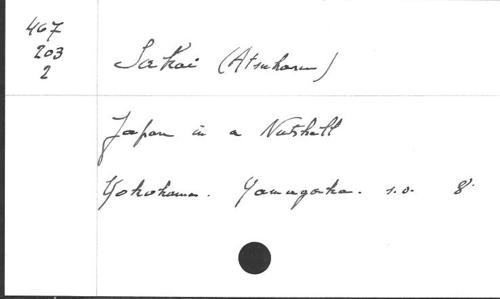 467
203
2
Sakai (Atsuharu)
Japan in a Nutshell
Yokohama. Yamagata. s.d. 8°